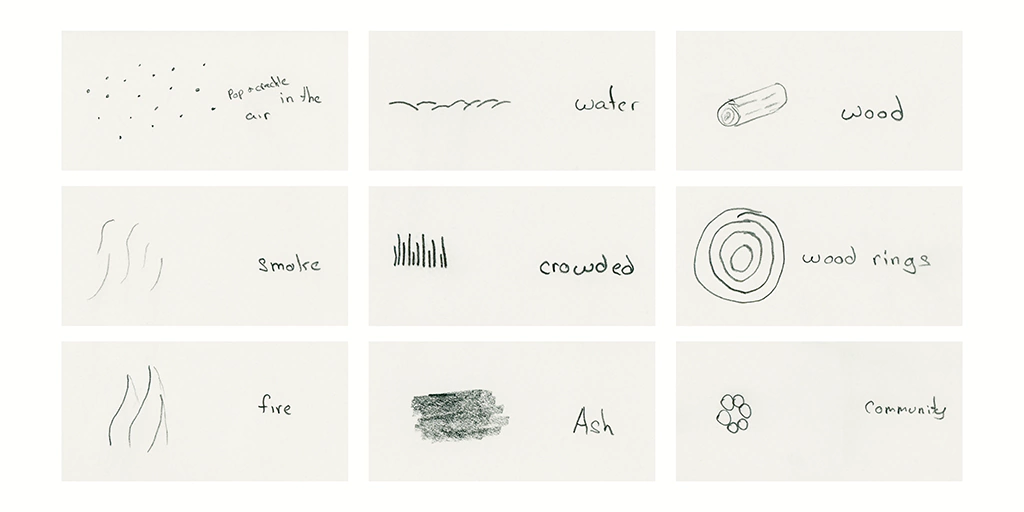 Pop & crackle
in the
air
water
wood
smoke
crowded
wood rings
fire
Ash
Community